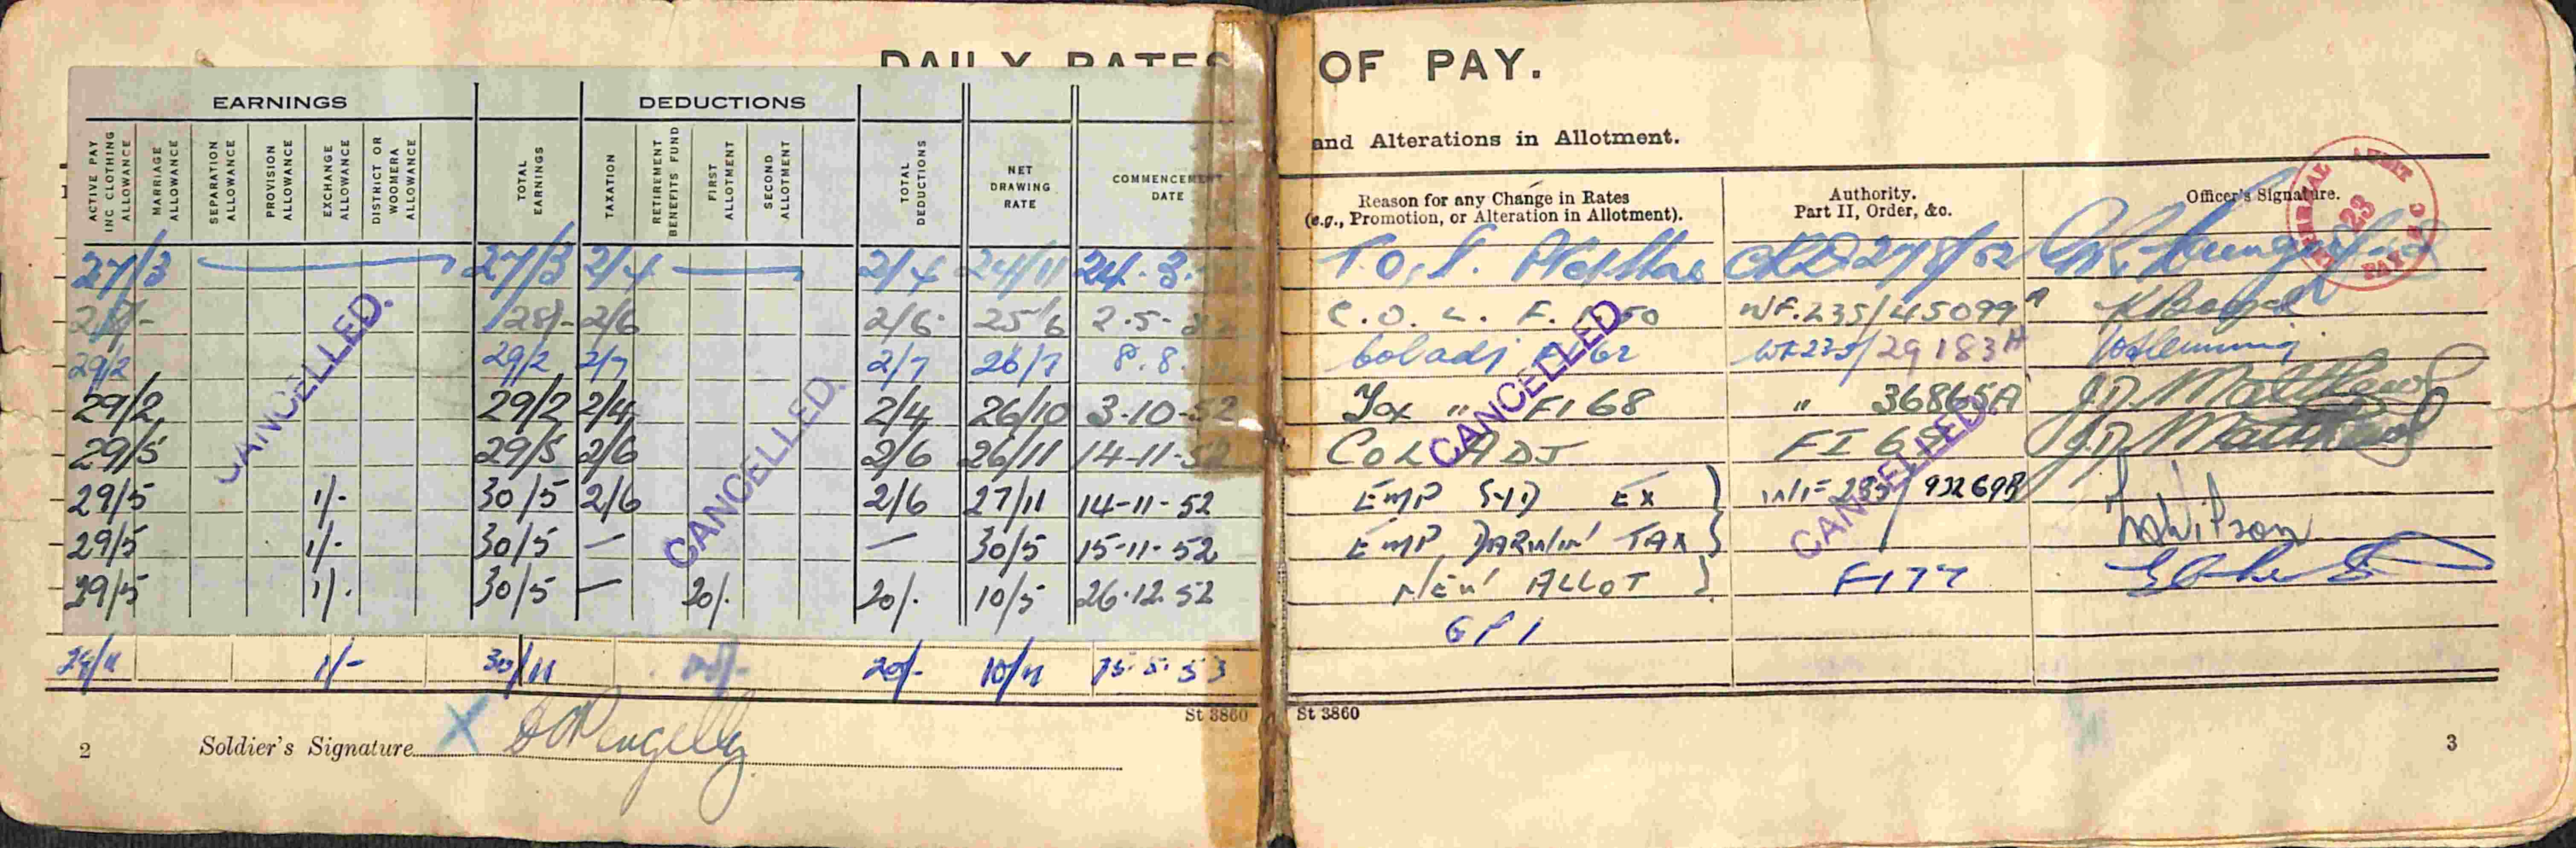 DAILY RATES OF PAY.
and Alterations in Allotment.
EARNINGS DEDUCTIONS
ACTIVE PAY INC CLOTHING ALLOWANCE
MARRIAGE ALLOWANCE
SEPARATION ALLOWANCE
PROVISION ALLOWANCE
EXCHANGE ALLOWANCE
DISTRICT OR WOOMERA ALLOWANCE
TOTAL EARNINGS
TAXATION
RETIREMENT BENEFITS FUND
FIRST ALLOTMENT
SECOND ALLOTMENT
TOTAL DEDUCTIONS
NET DRAWING RATE
COMMENCEMENT DATE
Reason for any Change in Rates
(e.g., Promotion, or Alteration in Allotment).
Authority.
Part II, Order, &c.
Officer's Signature.
27/3 27/3 2/4 2/4 24/11 24.3. T.O.S.
28/- 28/- 2/6 2/6 25/6 2.5. C.O.L. F. 50 WF.235/45099A K Boyd
29/2 29/2 2/7 2/7 26/7 8.8. Col adj F 62 WF235/29183A
29/2 29/2 2/4 2/4 26/10 3-10-52 Tax " FI 68 " 36865A J.D. Matthews
29/5 29/5 2/6 2/6 26/11 14-11-52 COL ADJ FI 69 J.D. Matthews
29/5 1/- 30/5 2/6 2/6 27/11 14-11-52 EMP SYD EX
29/5 1/- 30/5 — — 30/5 15-11-52 EMP DARWIN TAX Wilson
29/5 1/- 30/5 — 20/. 20/. 10/5 26.12.52 NEW ALLOT F177
GP1
29/11 1/- 30/11 20/- 10/11 15.5.53
CANCELLED.
CANCELLED.
CANCELLED
CANCELLED
AUDIT
23
PAY
St 3860 St 3860
2 Soldier's Signature X Pengelly
3